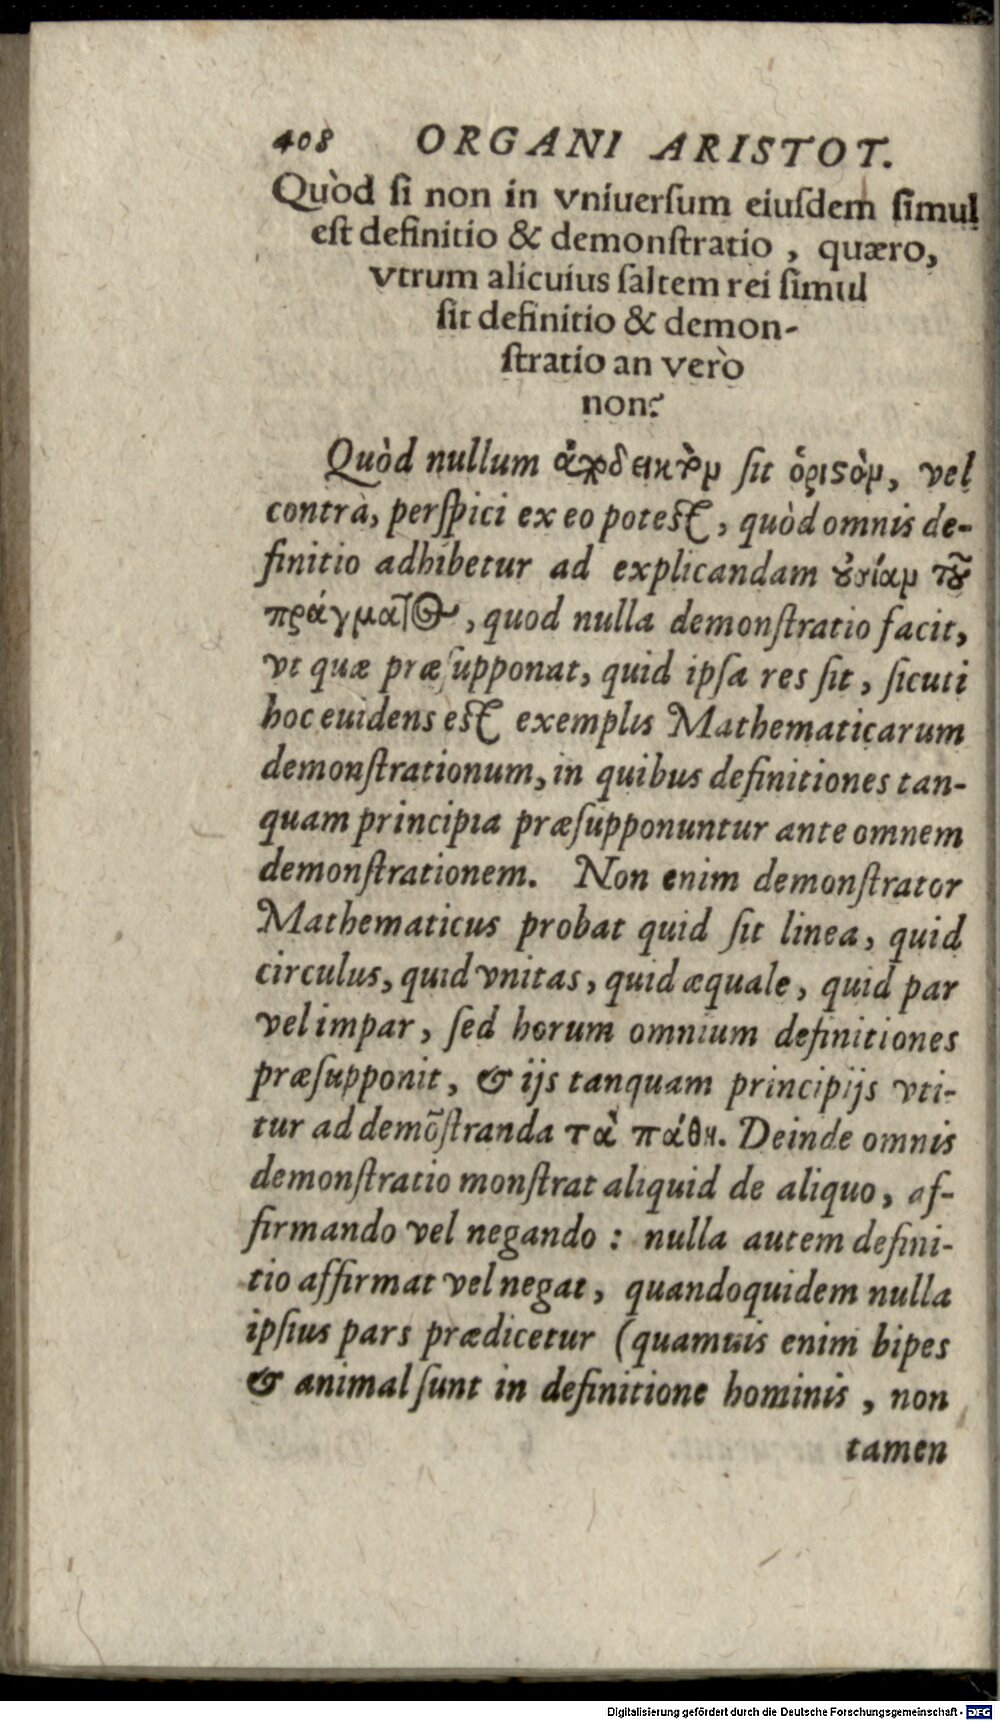 408 ORGANI ARISTOT.
Quòd ſi non in vniuerſum eiuſdem ſimul
eſt definitio & demonſtratio, quæro,
vtrum alicuius ſaltem rei ſimul
ſit definitio & demon-
ſtratio an verò
non?
Quòd nullum ἀποδεικτὸν ſit ὁριϛὸν, vel
contrà, perſpici ex eo poteſt, quòd omnis de-
finitio adhibetur ad explicandam ȣ̓σίαν τȣ͂
πράγματος, quod nulla demonſtratio facit,
vt quæ præſupponat, quid ipſa res ſit, ſicuti
hoc euidens eſt exemplis Mathematicarum
demonſtrationum, in quibus definitiones tan-
quam principia præſupponuntur ante omnem
demonſtrationem. Non enim demonſtrator
Mathematicus probat quid ſit linea, quid
circulus, quid vnitas, quid æquale, quid par
vel impar, ſed horum omnium definitiones
præſupponit, & ijs tanquam principijs vti-
tur ad demõſtranda τὰ πάθη. Deinde omnis
demonſtratio monſtrat aliquid de aliquo, af-
firmando vel negando: nulla autem defini-
tio affirmat vel negat, quandoquidem nulla
ipſius pars prædicetur (quamuis enim bipes
& animal ſunt in definitione hominis, non
tamen
Digitalisierung gefördert durch die Deutsche Forschungsgemeinschaft - DFG